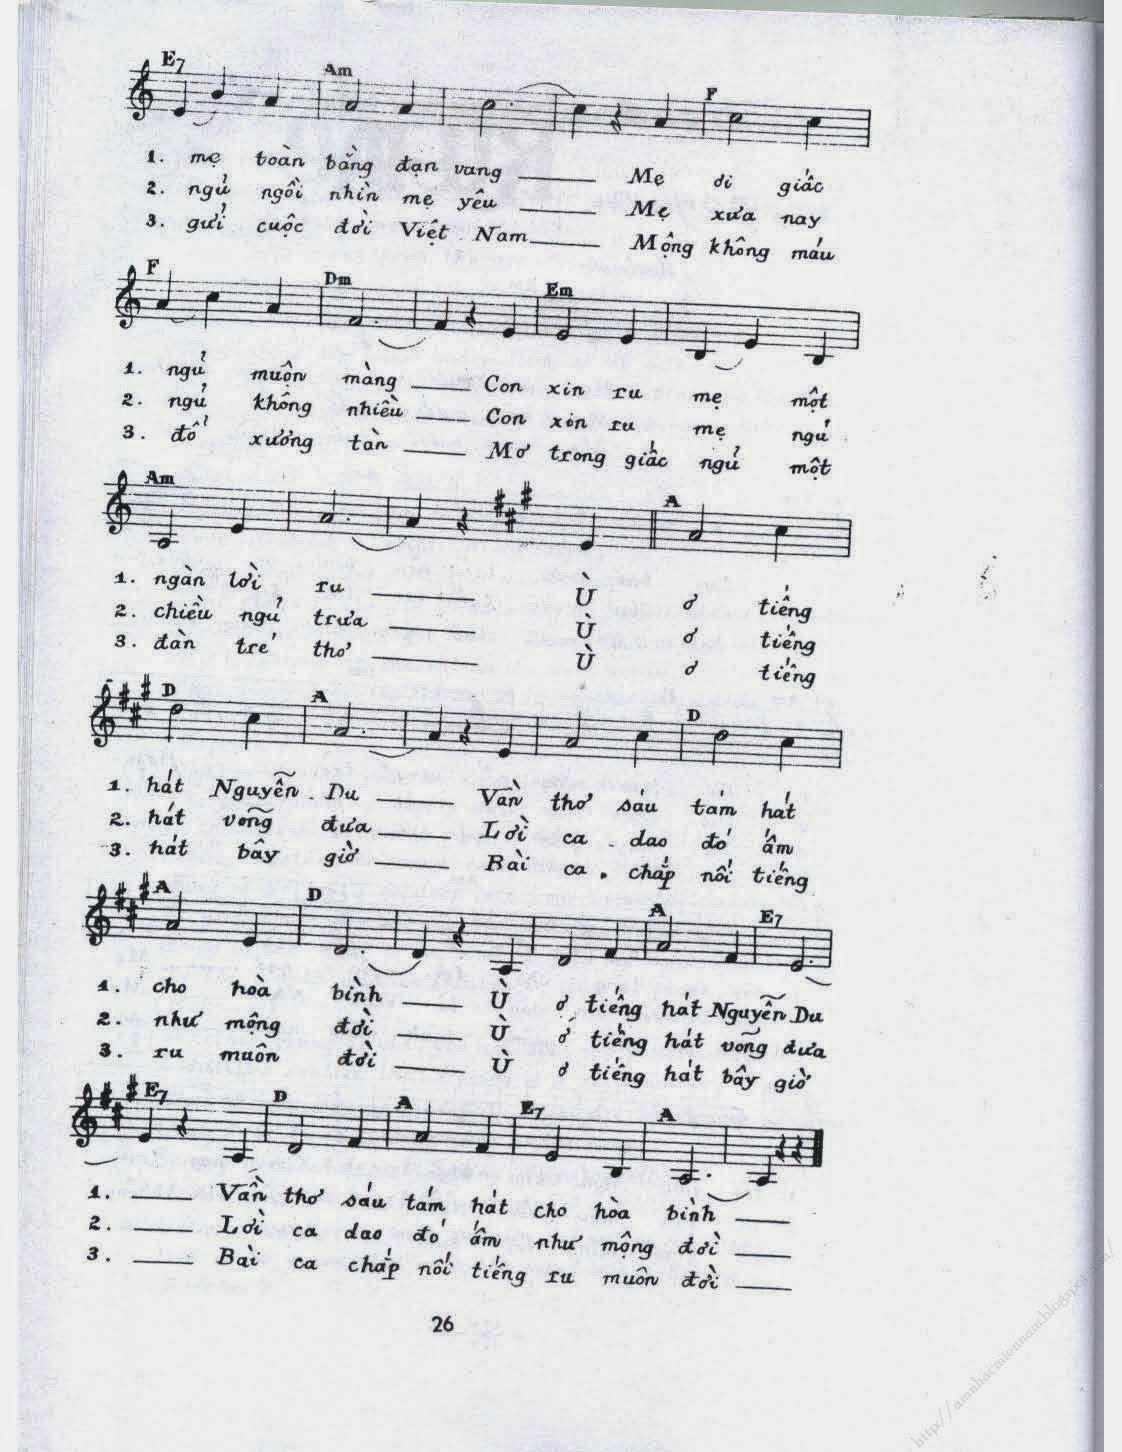 E7 Am F
1. mẹ toàn bằng đạn vang ______ Mẹ ơi giấc
2. ngủ ngồi nhìn mẹ yêu ______ Mẹ xưa nay
3. gửi cuộc đời Việt Nam ______ Mộng không máu
F Dm Em
1. ngủ muộn màng ______ Con xin ru mẹ một
2. ngủ không nhiều ______ Con xin ru mẹ ngủ
3. đổ xương tàn ______ Mơ trong giấc ngủ một
Am A
1. ngàn lời ru ______ Ù ơ tiếng
2. chiều ngủ trưa ______ Ù ơ tiếng
3. đàn trẻ thơ ______ Ù ơ tiếng
D A D
1. hát Nguyễn Du ______ Vần thơ sáu tám hát
2. hát võng đưa ______ Lời ca dao đó ấm
3. hát bây giờ ______ Bài ca chắp nối tiếng
A D A E7
1. cho hoà bình ______ Ù ơ tiếng hát Nguyễn Du
2. như mộng đời ______ Ù ơ tiếng hát võng đưa
3. ru muôn đời ______ Ù ơ tiếng hát bây giờ
E7 D A E7 A
1. ______ Vần thơ sáu tám hát cho hòa bình ______
2. ______ Lời ca dao đó ấm như mộng đời ______
3. ______ Bài ca chắp nối tiếng ru muôn đời ______
26
http://amnhacmiennam.blogspot.com/